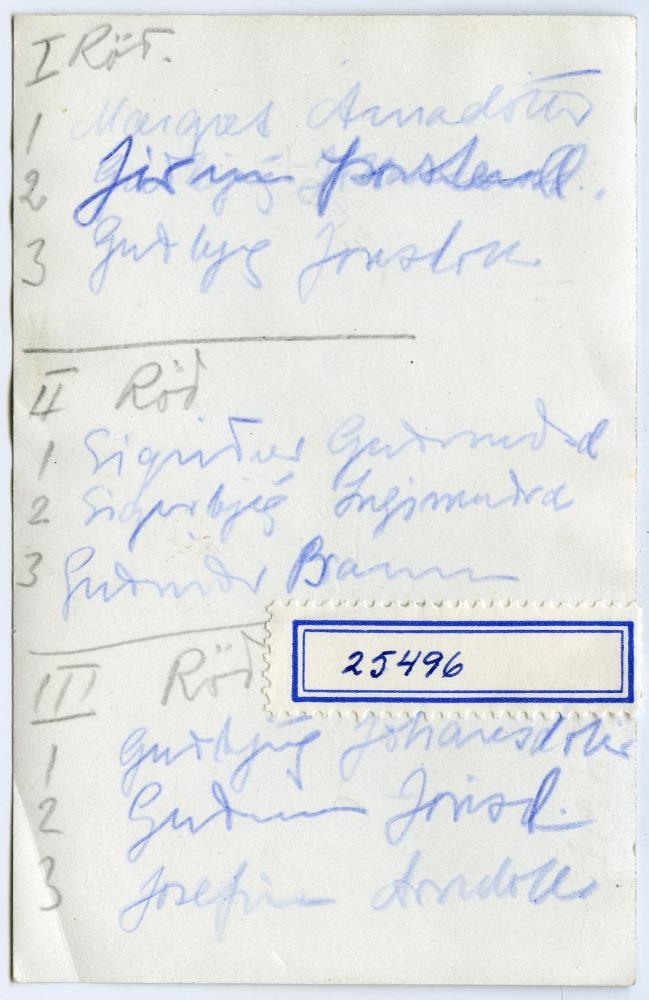 I Röð.
1 Margrét Árnadóttir
2
3 Guðbjög Jónsdótt
II Röð
1 Sigríður Guðmundsd
2 Sigurbjög Ingimundrd
3 Guðmundr Bramm
25496
III Röð
1 Guðbjög Jóhannesdóttir
2 Guðrún Jónsd.
3 Josefína